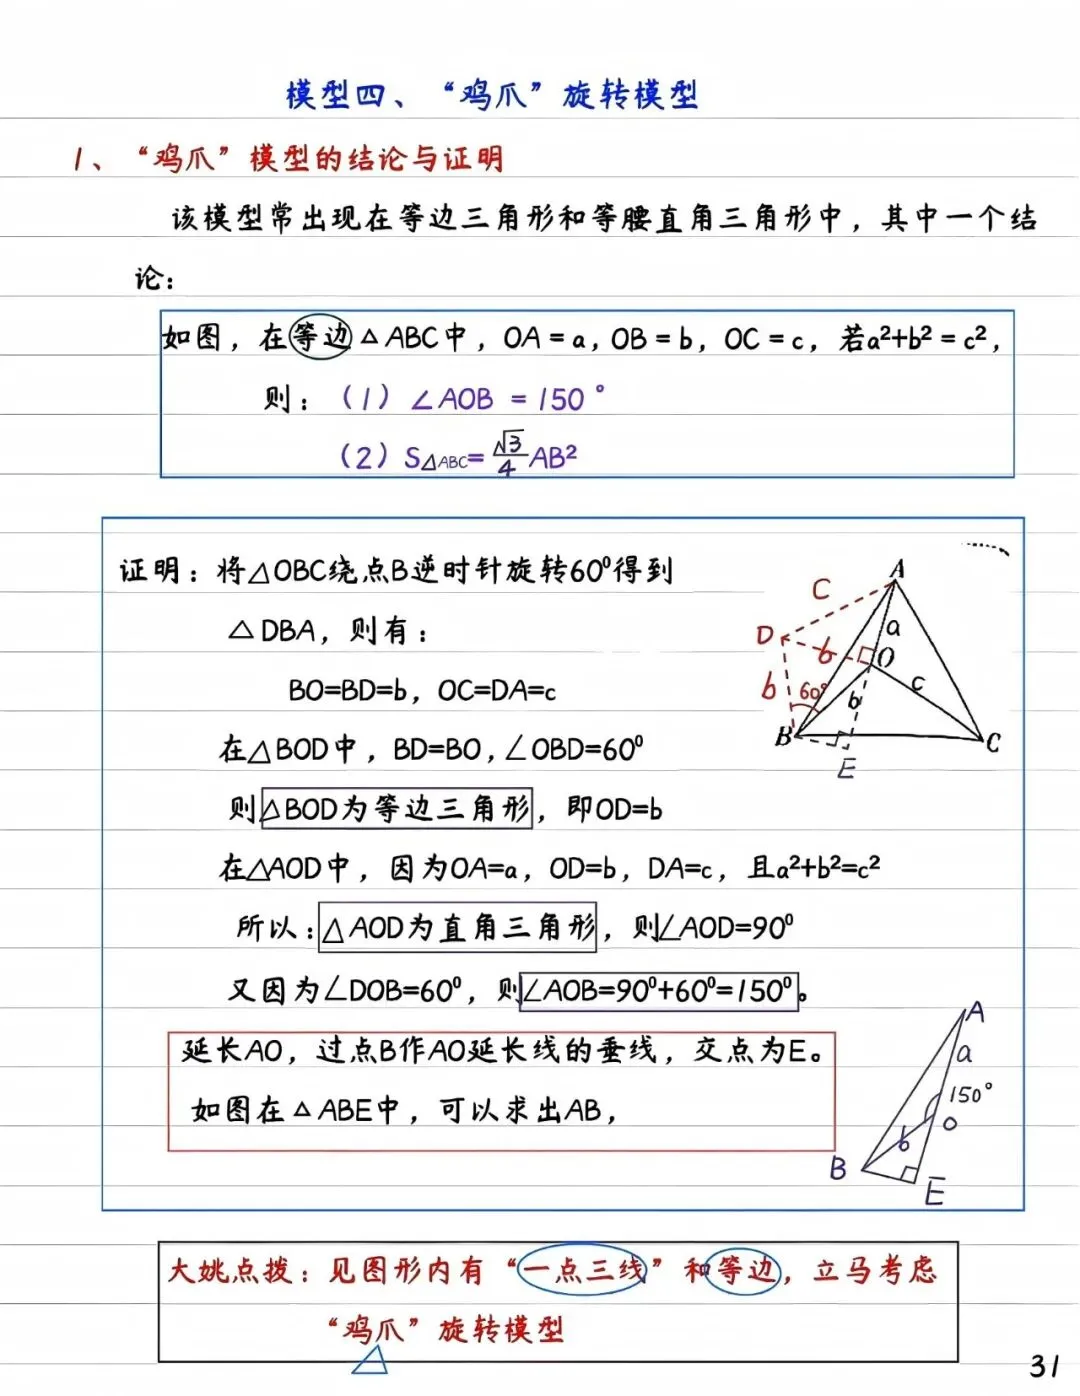 模型四、“鸡爪”旋转模型
1、“鸡爪”模型的结论与证明
该模型常出现在等边三角形和等腰直角三角形中，其中一个结
论：
如图，在等边△ABC中，OA=a，OB=b，OC=c，若a²+b²=c²，
则：（1）∠AOB =150°
（2）S△ABC=√3/4 AB²
证明：将△OBC绕点B逆时针旋转60⁰得到
△DBA，则有：
BO=BD=b，OC=DA=c
在△BOD中，BD=BO，∠OBD=60⁰
则△BOD为等边三角形，即OD=b
在△AOD中，因为OA=a，OD=b，DA=c，且a²+b²=c²
所以：△AOD为直角三角形，则∠AOD=90⁰
又因为∠DOB=60⁰，则∠AOB=90⁰+60⁰=150⁰。
延长AO，过点B作AO延长线的垂线，交点为E。
如图在△ABE中，可以求出AB，
A
C
a
D
b
O
b
60°
b
c
B
C
E
A
a
150°
O
b
B
E
大姚点拨：见图形内有“一点三线”和等边，立马考虑
“鸡爪”旋转模型
31